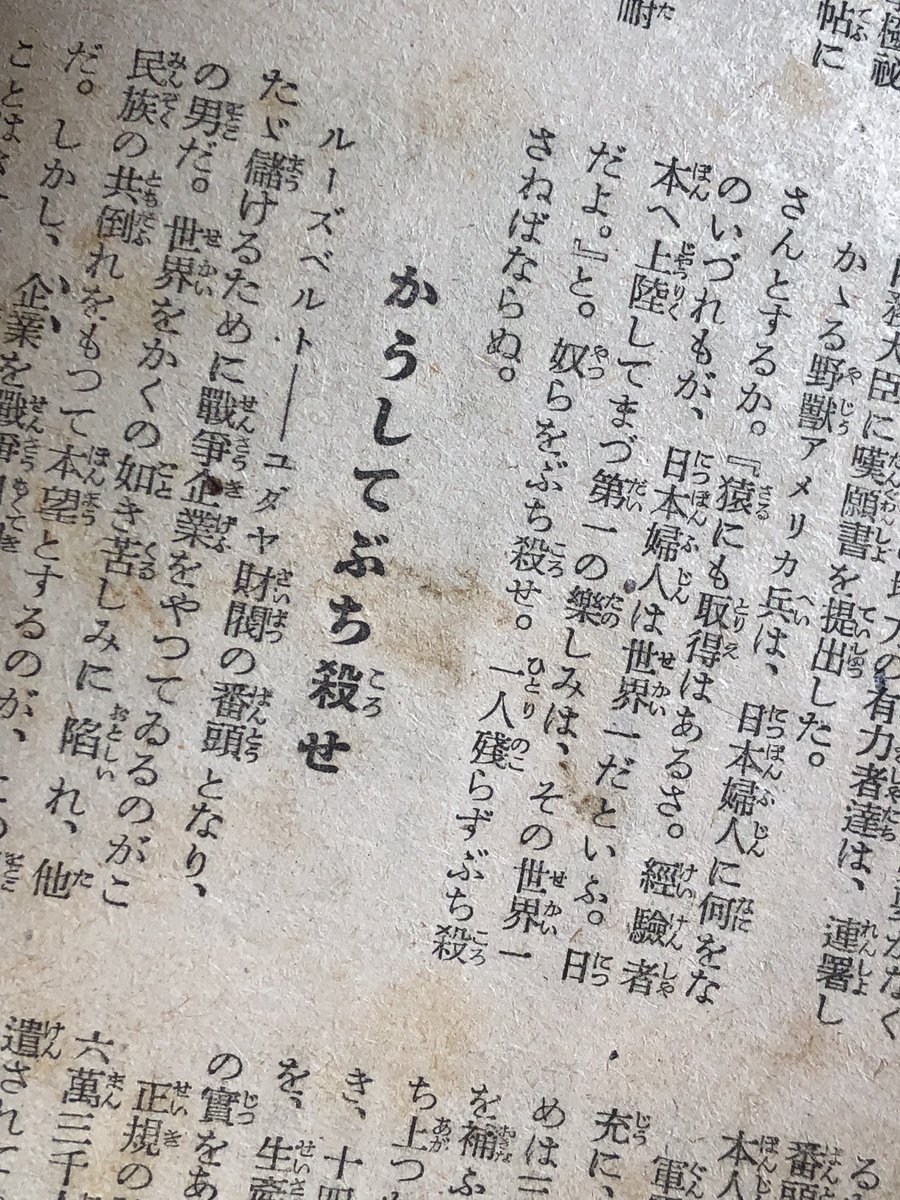 極祕
帖に
耐
内務大臣に嘆願書を提出した。
の有力者達は、連署し
かゝる野獸アメリカ兵は、日本婦人に何をな
さんとするか。『猿にも取得はあるさ。經驗者
のいづれもが、日本婦人は世界一だといふ。日
本へ上陸してまづ第一の樂しみは、その世界一
だよ。』と。奴らをぶち殺せ。一人殘らずぶち殺
さねばならぬ。
かうしてぶち殺せ
ルーズベルト――ユダヤ財閥の番頭となり、
たゞ儲けるために戰爭企業をやつてゐるのがこ
の男だ。世界をかくの如き苦しみに陷れ、他
民族の共倒れをもつて本望とするのが、
だ。しかし、企業を戰爭
ことは
る
番頭
本人
軍
充に、
めは三
を補ふ
ち上つ
き、十四
を、生產
の實をあ
正規の
六萬三千
遣されて